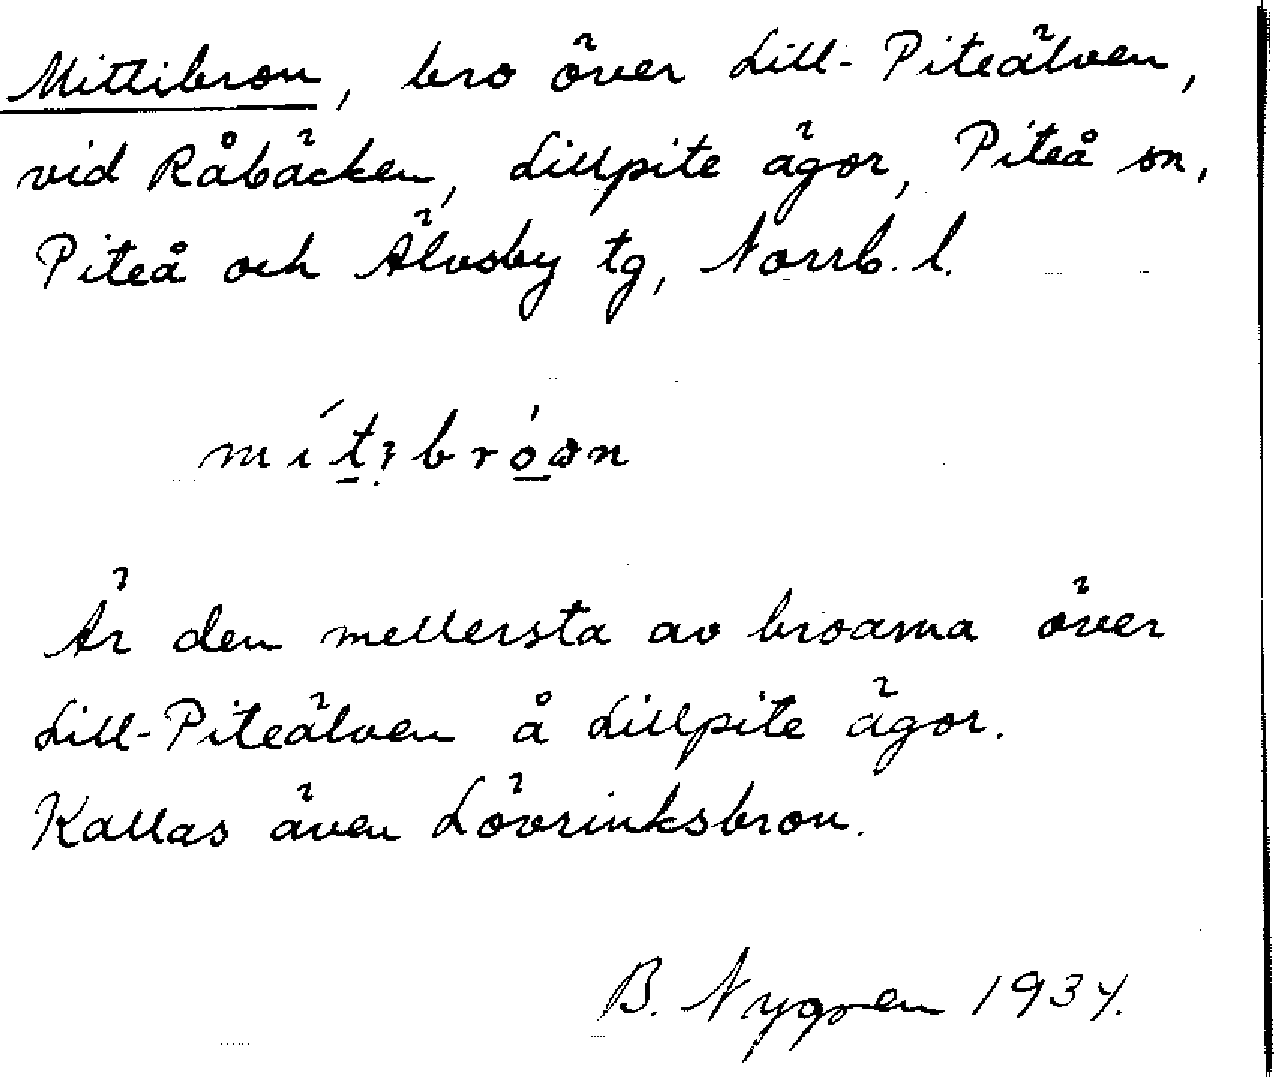 Mittibron, bro över Lill-Piteälven,
vid Råbäcken, Lillpite ägor, Piteå sn,
Piteå och Älvsby tg, Norrb. l.
Är den mellersta av broarna över
Lill-Piteälven å Lillpite ägor.
Kallas även Lövrinksbron.
B. Nygren 1934.